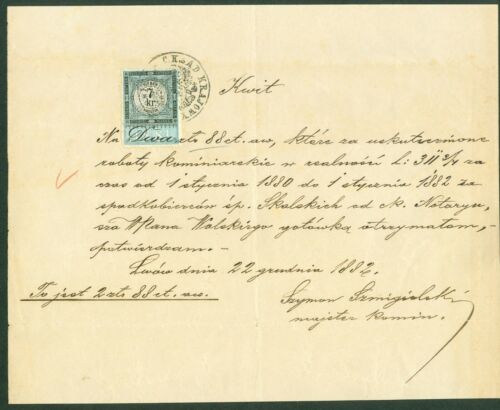 C. K. SĄD KRAJOWY
7
kr.
Kwit
Na Dwa złr 88 ct. aw, które za uskutecznione
roboty kominiarskie w realności L: 311 3/4 za
czas od 1 stycznia 1880 do 1 stycznia 1882 za
spadkobierców śp. Skalskich od k. Notaryu-
sza WPana Wolskiego gotówką otrzymałem,-
-potwierdzam.-
Lwów dnia 22 grudnia 1882.
To jest 2 złr 88 ct. aw.
Szymon Szmigielski
majster komin.